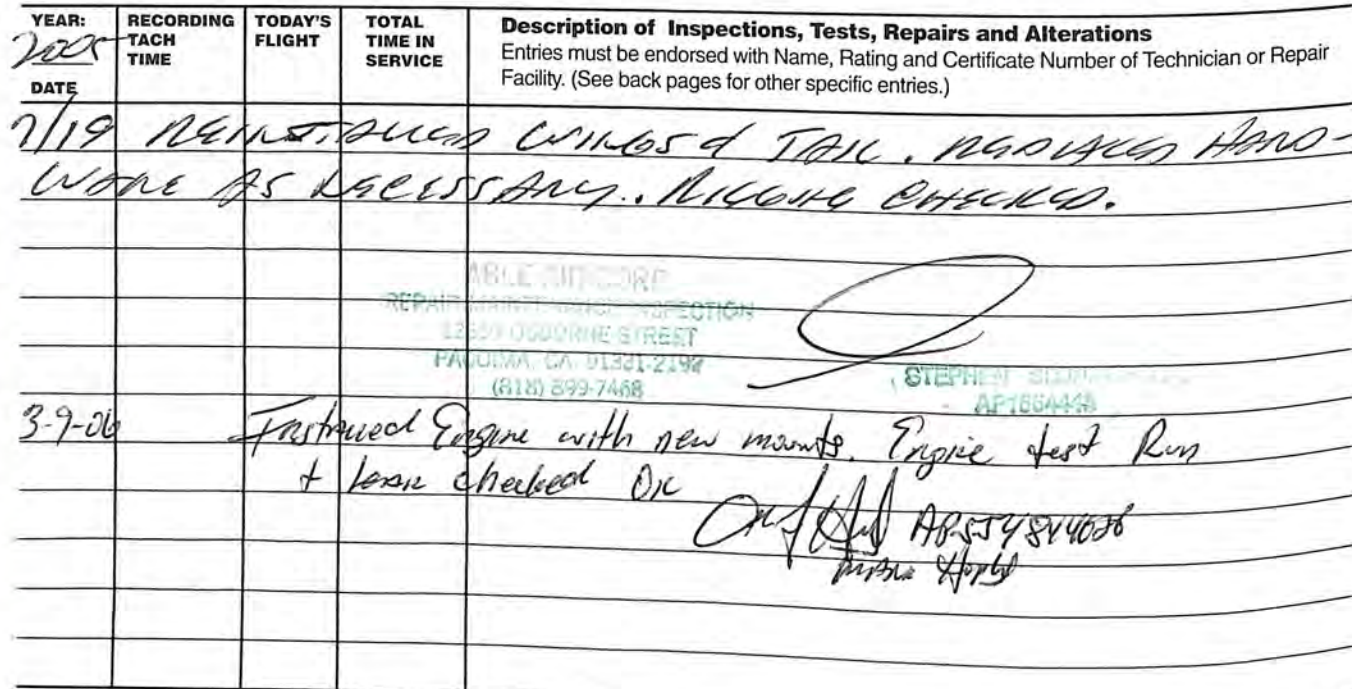 YEAR:
2005
DATE
RECORDING TACH TIME
TODAY'S FLIGHT
TOTAL TIME IN SERVICE
Description of Inspections, Tests, Repairs and Alterations
Entries must be endorsed with Name, Rating and Certificate Number of Technician or Repair
Facility. (See back pages for other specific entries.)
7/19 REINSTALLED WINGS & TAIL. REPLACED HARD-
WARE AS NECESSARY. RIGGING CHECKED.
ABLE AIR CORP
REPAIR MAINTENANCE INSPECTION
OSBORNE STREET
PACOIMA, CA. 91331-2198
(818) 899-7468
STEPHEN
3-9-06 Installed Engine with new mounts. Engine test Run
+ leak checked OK